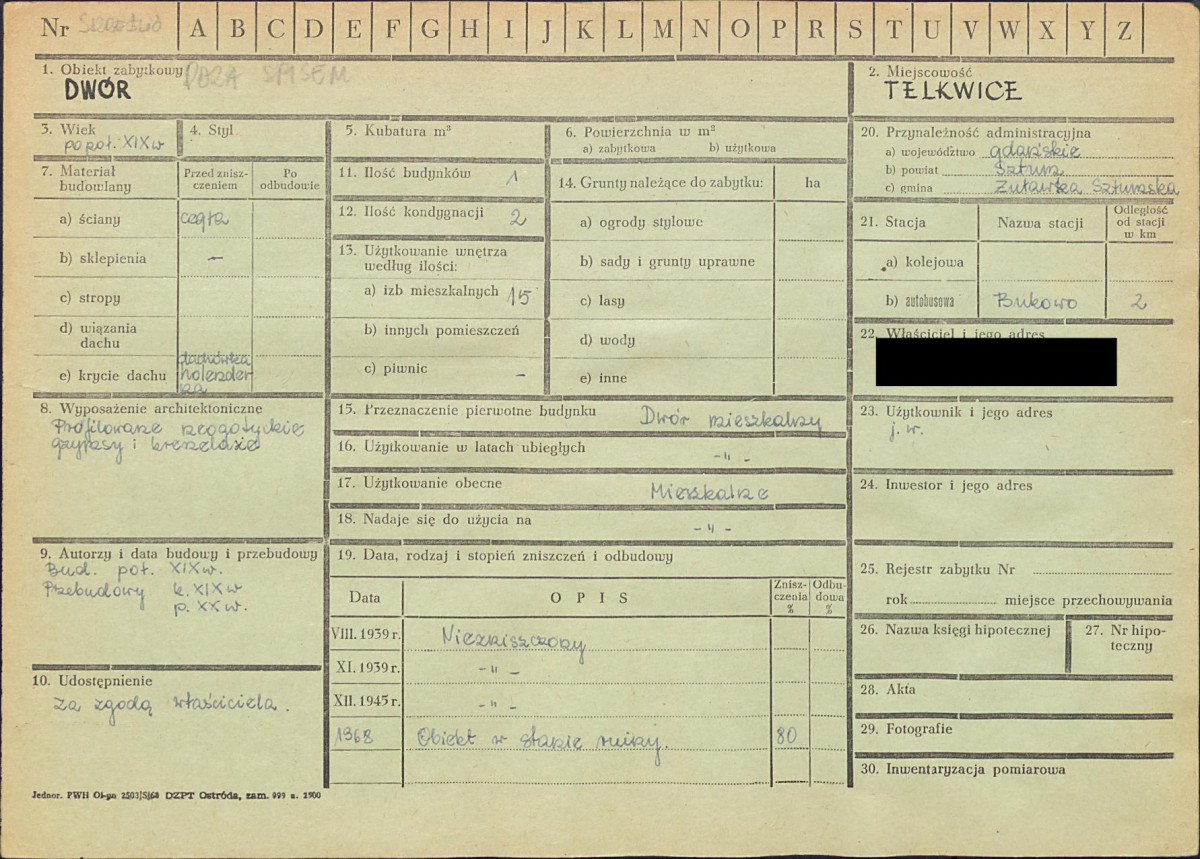 Nr
A B C D E F G H I J K L M N O P R S T U V W X Y Z
1. Obiekt zabytkowy POZA SPISEM
DWÓR
2. Miejscowość
TELKWICE
3. Wiek
po poł. XIX w
4. Styl
5. Kubatura m³
6. Powierzchnia w m²
a) zabytkowa b) użytkowa
7. Materiał budowlany
Przed znisz-
czeniem
Po
odbudowie
a) ściany cegła
b) sklepienia –
c) stropy
d) wiązania
dachu
e) krycie dachu dachówka
holender
ka
8. Wyposażenie architektoniczne
Profilowane neogotyckie
gzymsy i krenelaże
9. Autorzy i data budowy i przebudowy
Bud. poł. XIX w.
Przebudowy k. XIX w
p. XX w.
10. Udostępnienie
Za zgodą właściciela.
11. Ilość budynków 1
12. Ilość kondygnacji 2
13. Użytkowanie wnętrza
według ilości:
a) izb mieszkalnych 15
b) innych pomieszczeń
c) piwnic –
14. Grunty należące do zabytku: ha
a) ogrody stylowe
b) sady i grunty uprawne
c) lasy
d) wody
e) inne
15. Przeznaczenie pierwotne budynku Dwór mieszkalny
16. Użytkowanie w latach ubiegłych -"-
17. Użytkowanie obecne Mieszkalne
18. Nadaje się do użycia na -"-
19. Data, rodzaj i stopień zniszczeń i odbudowy
Data OPIS Znisz-
czenia
% Odbu-
dowa
%
VIII. 1939 r. Niezniszczony
XI. 1939 r. -"-
XII. 1945 r. -"-
1968 Obiekt w stanie ruiny. 80
20. Przynależność administracyjna
a) województwo gdańskie
b) powiat Sztum
c) gmina Żuławka Sztumska
21. Stacja Nazwa stacji Odległość
od stacji
w km
a) kolejowa
b) autobusowa Bukowo 2
22. Właściciel i jego adres
23. Użytkownik i jego adres
j. w.
24. Inwestor i jego adres
25. Rejestr zabytku Nr
rok miejsce przechowywania
26. Nazwa księgi hipotecznej
27. Nr hipo-
teczny
28. Akta
29. Fotografie
30. Inwentaryzacja pomiarowa
Jednor. PWH Ol-gn 2503/S/68 DZPT Ostróda, zam. 999 n. 2500